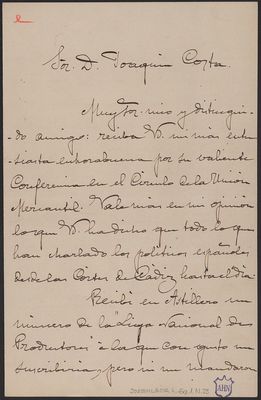 Sor. D. Joaquin Costa.
Muy Sor. mio y distingui-
do amigo: reciba V. mi más entu-
siasta enhorabuena por su valiente
Conferencia en el Círculo de la Unión
Mercantil. Vale más en mi opinión
lo que V. ha dicho que todo lo que
han charlado los políticos españoles
desde las Cortes de Cadiz hasta el dia.
Recibí en Astillero un
número de la "Liga Nacional de
Productores" á la que con gusto me
suscribiria, pero ni me mandaron
AHN